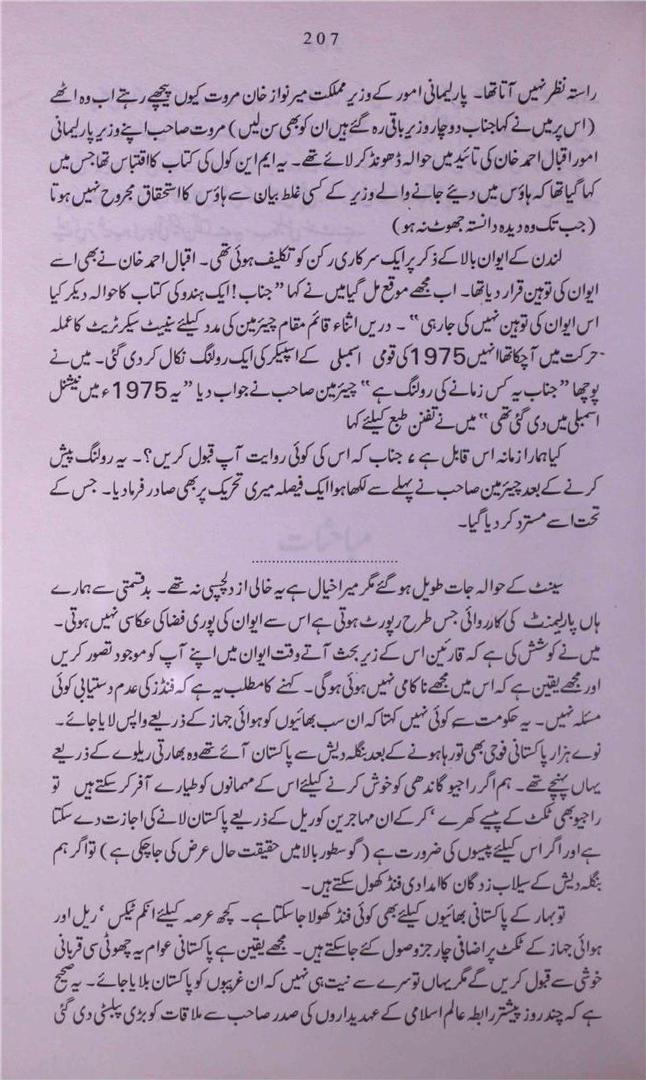 207
راستہ نظر نہیں آتا تھا۔ پارلیمانی امور کے وزیر مملکت میر نواز خان مروت کیوں پیچھے رہتے اب وہ اٹھے
(اس پر میں نے کہا جناب دو چار وزیر باقی رہ گئے ہیں ان کو بھی سن لیں) مروت صاحب اپنے وزیر پارلیمانی
امور اقبال احمد خان کی تائید میں حوالہ ڈھونڈ کر لائے تھے۔ یہ ایم این کول کی کتاب کا اقتباس تھا جس میں
کہا گیا تھا کہ ہاؤس میں دیئے جانے والے وزیر کے کسی غلط بیان سے ہاؤس کا استحقاق مجروح نہیں ہوتا
(جب تک وہ دیدہ دانستہ جھوٹ نہ ہو)
لندن کے ایوان بالا کے ذکر پر ایک سرکاری رکن کو تکلیف ہوئی تھی۔ اقبال احمد خان نے بھی اسے
ایوان کی توہین قرار دیا تھا۔ اب مجھے موقع مل گیا میں نے کہا ”جناب! ایک ہندو کی کتاب کا حوالہ دیکر کیا
اس ایوان کی توہین نہیں کی جا رہی“۔ دریں اثناء قائم مقام چیئرمین کی مدد کیلئے سینیٹ سیکرٹریٹ کا عملہ
حرکت میں آ چکا تھا انہیں 1975 کی قومی اسمبلی کے اسپیکر کی ایک رولنگ نکال کر دی گئی۔ میں نے
پوچھا ”جناب یہ کس زمانے کی رولنگ ہے“ چیئرمین صاحب نے جواب دیا ”یہ 1975ء میں نیشنل
اسمبلی میں دی گئی تھی“ میں نے تفنن طبع کیلئے کہا
کیا ہمارا زمانہ اس قابل ہے، جناب کہ اس کی کوئی روایت آپ قبول کریں؟۔ یہ رولنگ پیش
کرنے کے بعد چیئرمین صاحب نے پہلے سے لکھا ہوا ایک فیصلہ میری تحریک پر بھی صادر فرما دیا۔ جس کے
تحت اسے مسترد کر دیا گیا۔
........................................
سینٹ کے حوالہ جات طویل ہو گئے مگر میرا خیال ہے یہ خالی از دلچسپی نہ تھے۔ بدقسمتی سے ہمارے
ہاں پارلیمنٹ کی کارروائی جس طرح رپورٹ ہوتی ہے اس سے ایوان کی پوری فضا کی عکاسی نہیں ہوتی۔
میں نے کوشش کی ہے کہ قارئین اس کے زیر بحث آتے وقت ایوان میں اپنے آپ کو موجود تصور کریں
اور مجھے یقین ہے کہ اس میں مجھے ناکامی نہیں ہوئی ہوگی۔ کہنے کا مطلب یہ ہے کہ فنڈز کی عدم دستیابی کوئی
مسئلہ نہیں۔ یہ حکومت سے کوئی نہیں کہتا کہ ان سب بھائیوں کو ہوائی جہاز کے ذریعے واپس لایا جائے۔
نوے ہزار پاکستانی فوجی بھی تو رہا ہونے کے بعد بنگلہ دیش سے پاکستان آئے تھے وہ بھارتی ریلوے کے ذریعے
یہاں پہنچے تھے۔ ہم اگر راجیو گاندھی کو خوش کرنے کیلئے اس کے مہمانوں کو طیارے آفر کر سکتے ہیں تو
راجیو بھی ٹکٹ کے پیسے کھرے، کر کے ان مہاجرین کو ریل کے ذریعے پاکستان لانے کی اجازت دے سکتا
ہے اور اگر اس کیلئے پیسوں کی ضرورت ہے (گو سطور بالا میں حقیقت حال عرض کی جا چکی ہے) تو اگر ہم
بنگلہ دیش کے سیلاب زدگان کا امدادی فنڈ کھول سکتے ہیں۔
تو بہار کے پاکستانی بھائیوں کیلئے بھی کوئی فنڈ کھولا جا سکتا ہے۔ کچھ عرصہ کیلئے انکم ٹیکس، ریل اور
ہوائی جہاز کے ٹکٹ پر اضافی چارجز وصول کئے جا سکتے ہیں۔ مجھے یقین ہے پاکستانی عوام یہ چھوٹی سی قربانی
خوشی سے قبول کریں گے مگر یہاں تو سرے سے نیت ہی نہیں کہ ان غریبوں کو پاکستان بلایا جائے۔ یہ صحیح
ہے کہ چند روز پیشتر رابطہ عالم اسلامی کے عہدیداروں کی صدر صاحب سے ملاقات کو بڑی پبلسٹی دی گئی